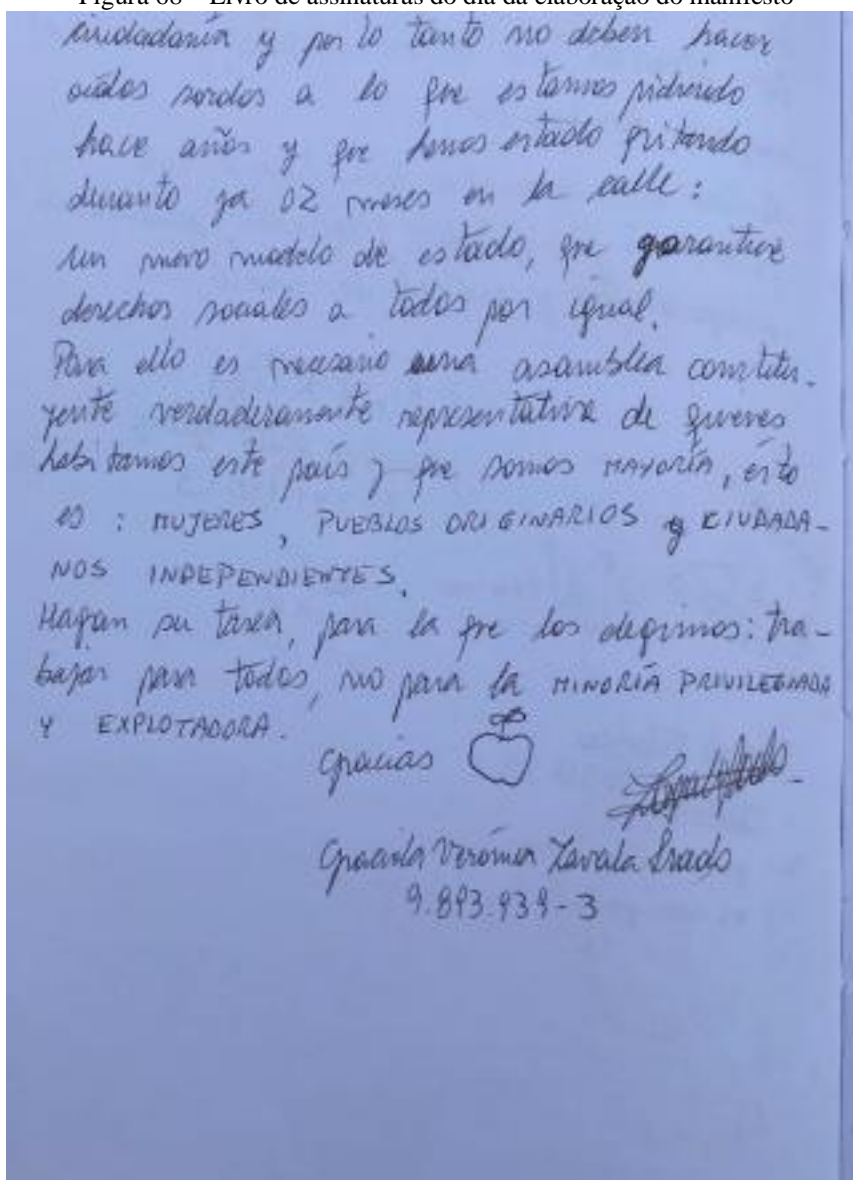 Figura 68 – Livro de assinaturas do dia da elaboração do manifesto
ciudadanía y por lo tanto no deben hacer
oídos sordos a lo que estamos pidiendo
hace años y que hemos estado gritando
durante ya 02 meses en la calle:
un nuevo modelo de estado, que garantice
derechos sociales a todos por igual.
Para ello es necesario una asamblea constitu-
yente verdaderamente representativa de quienes
habitamos este país y que somos MAYORÍA, esto
es: MUJERES, PUEBLOS ORIGINARIOS y CIUDADA-
NOS INDEPENDIENTES.
Hagan su tarea, para la que los elegimos: tra-
bajar para todos, no para la MINORÍA PRIVILEGIADA
Y EXPLOTADORA.
Gracias
Graciela Verónica Zavala
9.893.939-3